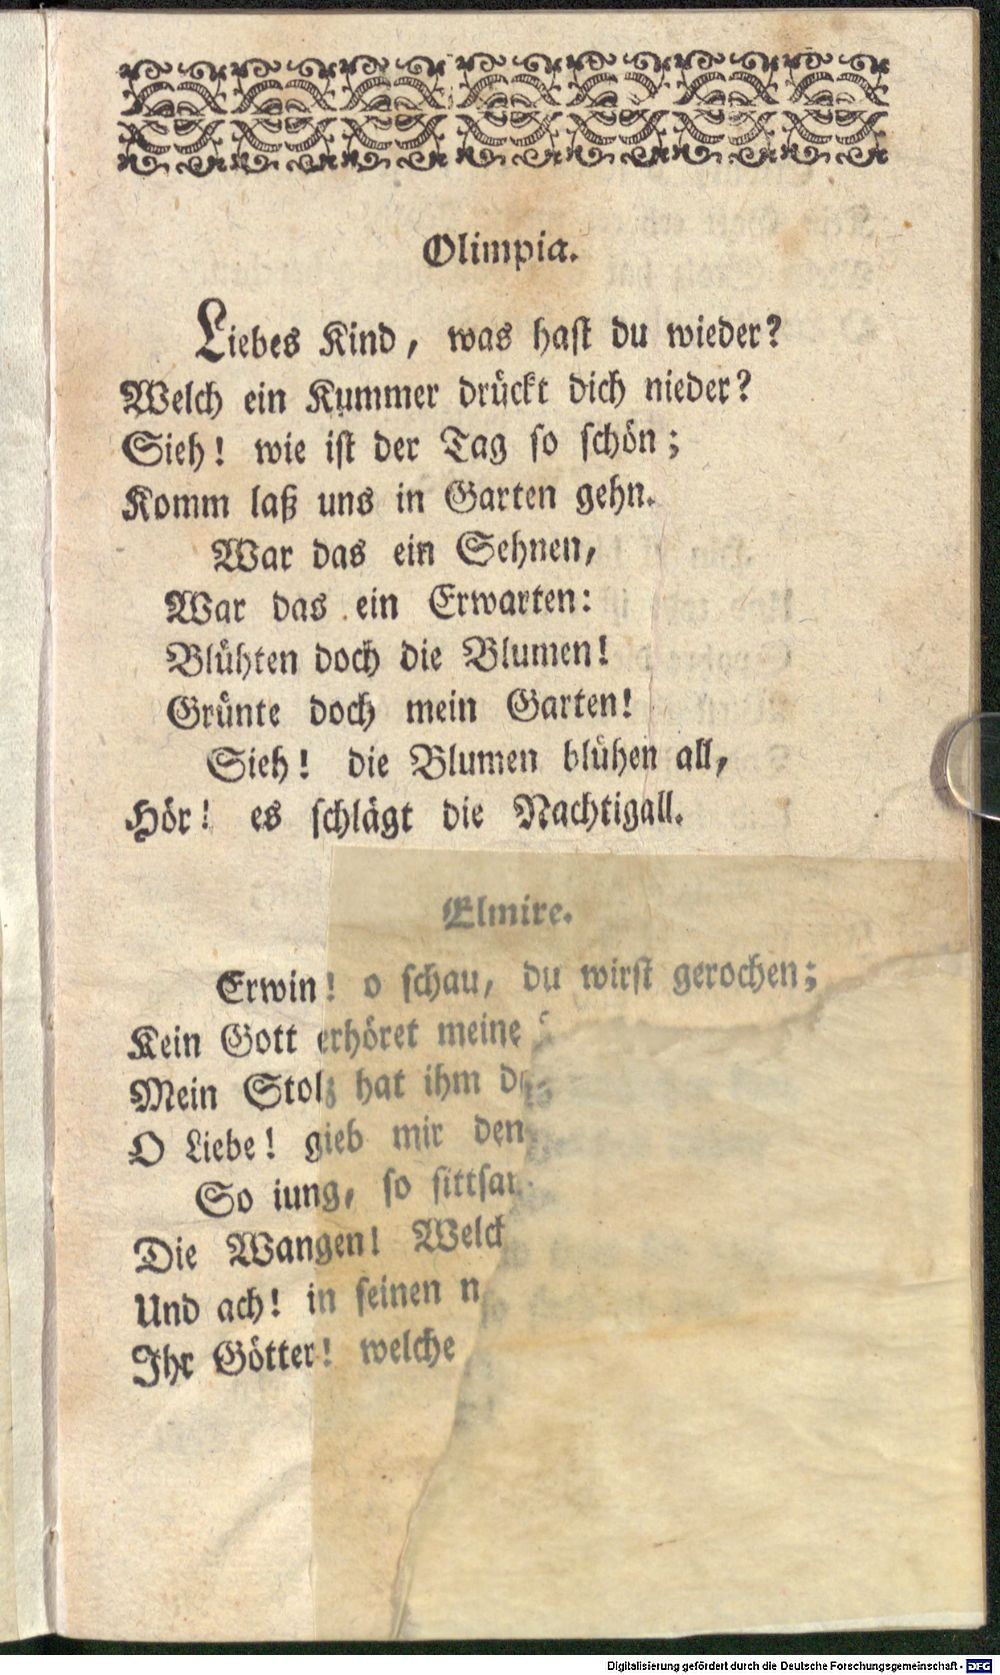 Olimpia.
Liebes Kind, was hast du wieder?
Welch ein Kummer drückt dich nieder?
Sieh! wie ist der Tag so schön;
Komm laß uns in Garten gehn.
War das ein Sehnen,
War das ein Erwarten:
Blühten doch die Blumen!
Grünte doch mein Garten!
Sieh! die Blumen blühen all,
Hör! es schlägt die Nachtigall.
Elmire.
Erwin! o schau, du wirst gerochen;
Kein Gott erhöret meine
Mein Stolz hat ihm
O Liebe! gieb mir den
So iung, so
Die Wangen!
Und ach! in seinen
Ihr Götter! welche
Digitalisierung gefördert durch die Deutsche Forschungsgemeinschaft - DFG